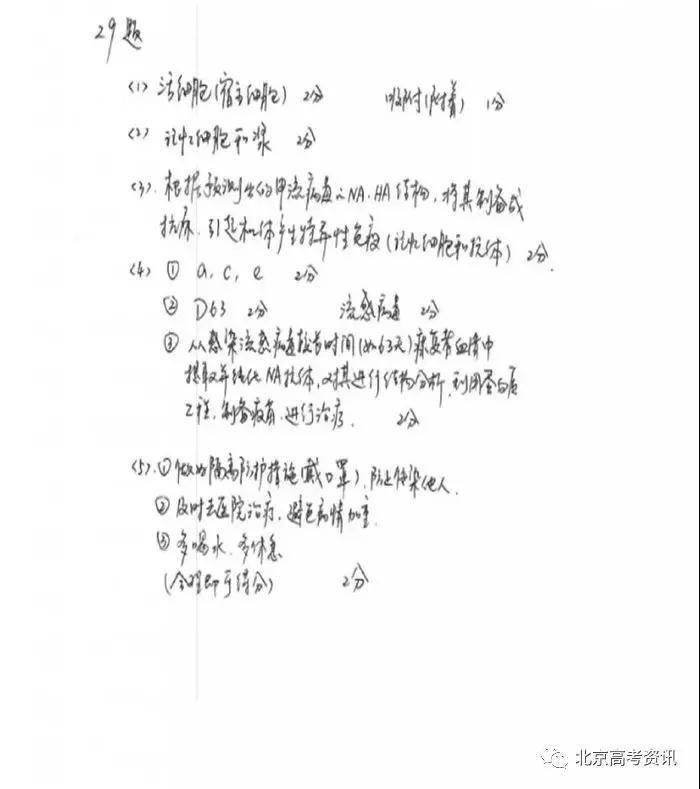 29题
(1) 活细胞(宿主细胞) 2分 吸附(附着) 1分
(2) 记忆细胞和浆 2分
(3). 根据预测出的甲流病毒的NA.HA结构, 将其制备成
抗原. 引起机体产生特异性免疫(记忆细胞和抗体) 2分.
(4) ① a, c, e 2分
② D63 2分 流感病毒 2分
③ 从感染流感病毒较长时间(如63天)康复者血清中
提取并纯化NA抗体, 对其进行结构分析. 利用蛋白质
工程, 制备疫苗. 进行治疗. 2分
(5). ① 做好隔离防护措施(戴口罩), 防止传染他人.
② 及时去医院治疗. 避免病情加重.
③ 多喝水. 多休息
(合理即可得分) 2分
北京高考资讯